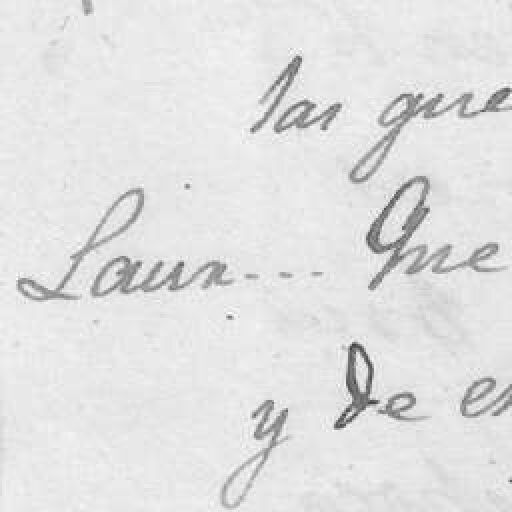 las que
Laura... Que
y de